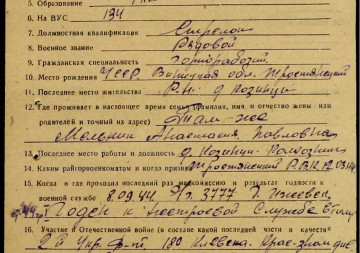 5. Образование
6. На ВУС 134
7. Должностная квалификация Стрелок
8. Военное звание Рядовой
9. Гражданская специальность
10. Место рождения УССР. Винницк обл. Тростянецкий
11. Последнее место жительства Р-н.
12. Где проживает в настоящее время семья (фамилия, имя и отчество жены или
родителей и точный их адрес) Там же
Мельник Анастасия Павловна
13. Последнее место работы и должность
14. Каким райгорвоенкоматом и когда призван Тростянецкий
15. Когда и где проходил последний раз медкомиссию и результат годности к
военной службе 8.09.44 3777 г. Ижевск
Годен к нестроевой Службе в тылу
16. Участие в Отечественной войне (в составе какой последней части в качестве
2й Укр. 180 Киевск. Крас